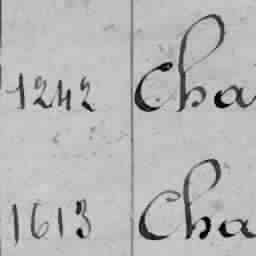 1242 Cha
1613 Cha